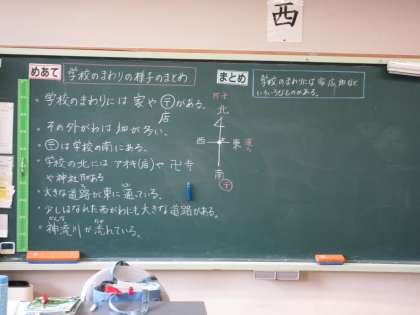 西
めあて 学校のまわりの様子のまとめ
まとめ 学校のまわりには家、店、畑など
いろいろなものがある。
・学校のまわりには家や〒がある。
店
・その外がわは畑が多い。
・〒は学校の南にある。
・学校の北にはアオキ(店)や卍寺
や神社がある
・大きな道路が東に通っている。
・少しはなれた西がわにも大きな道路がある。
・神流川が流れている。
かんな
北
西
東
南
〒